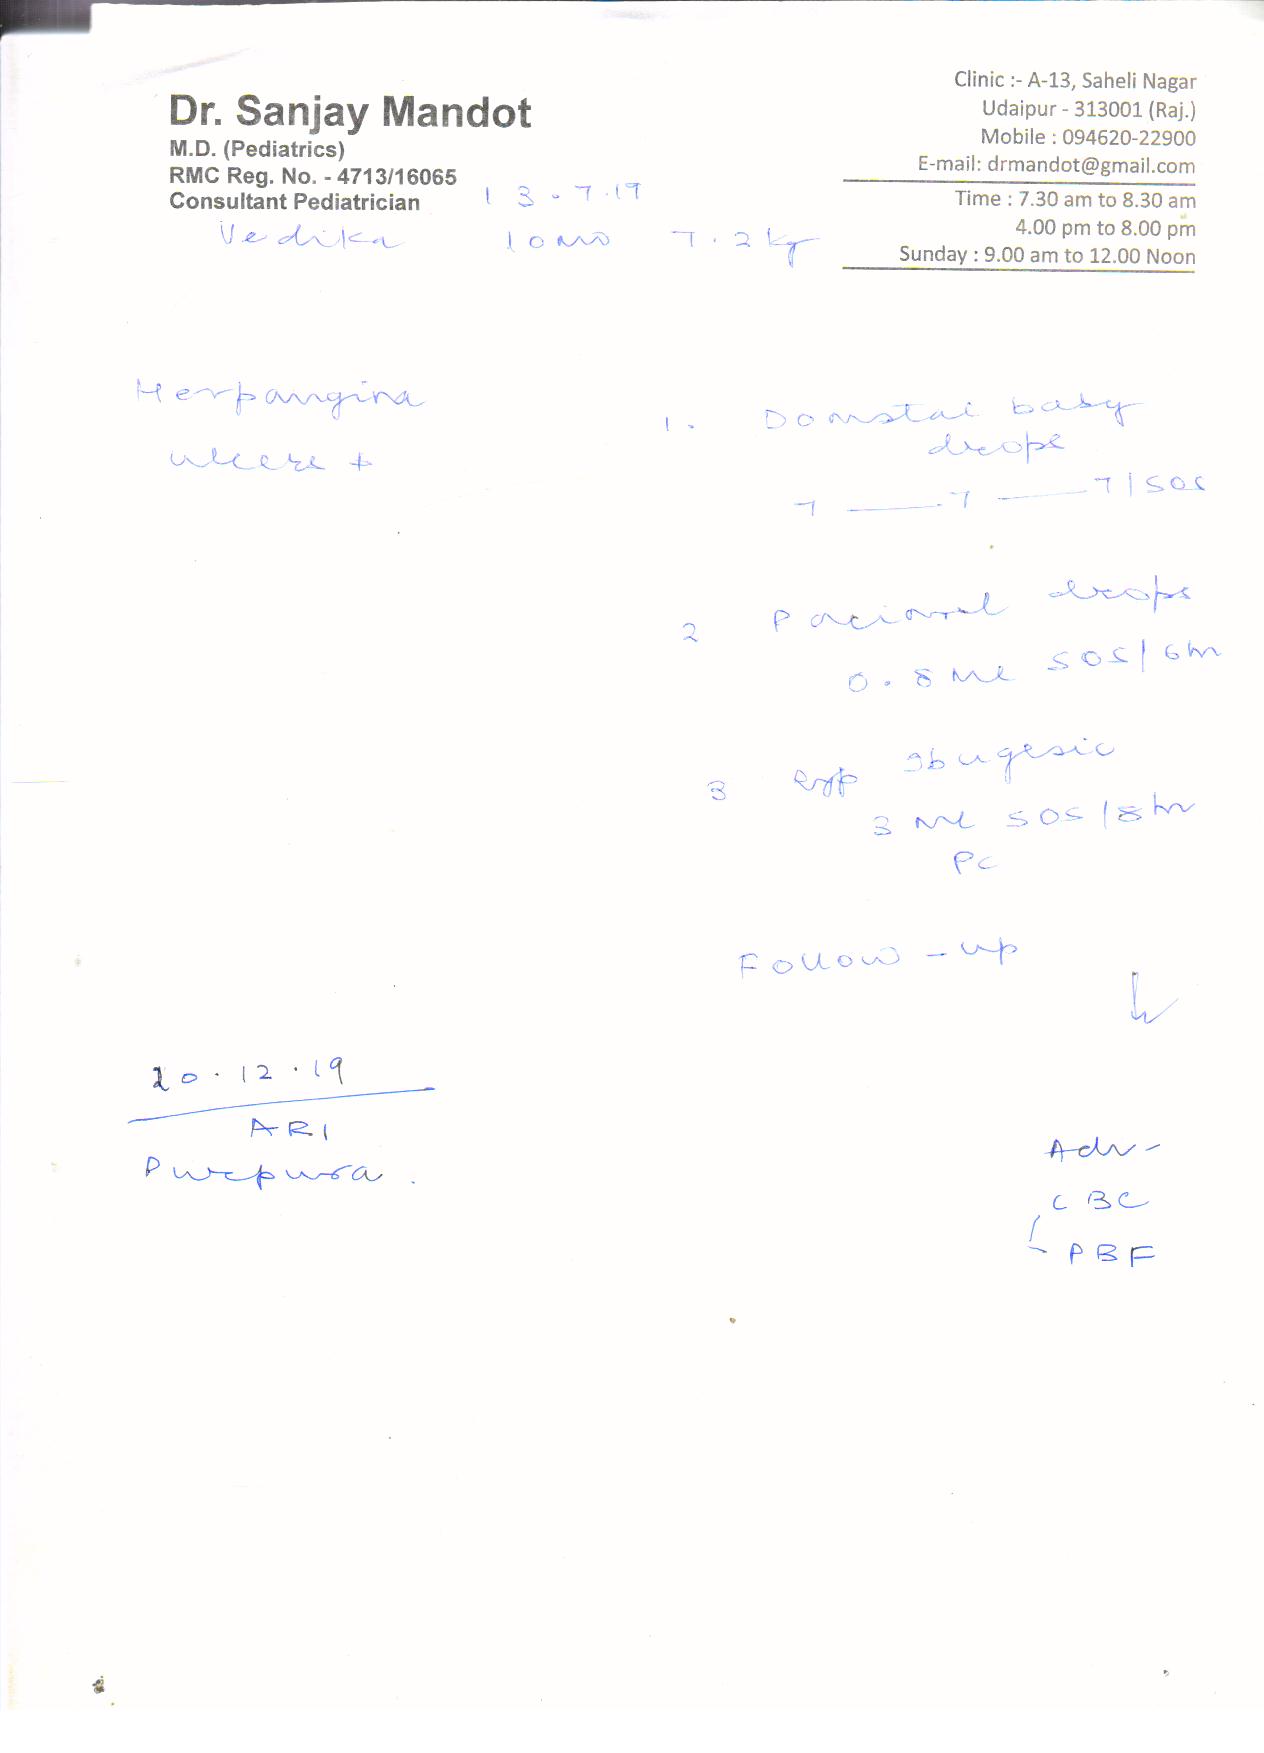 Dr. Sanjay Mandot
M.D. (Pediatrics)
RMC Reg. No. - 4713/16065
Consultant Pediatrician
Clinic :- A-13, Saheli Nagar
Udaipur - 313001 (Raj.)
Mobile : 094620-22900
E-mail: drmandot@gmail.com
Time : 7.30 am to 8.30 am
4.00 pm to 8.00 pm
Sunday : 9.00 am to 12.00 Noon
13-7-19
Vedika 10 mo 7.2 kg
Herpangina
ulcers +
1. Domstal baby
drops
7 — 7 — 7 / SOS
2 Pacimol drops
0.8 ml SOS / 6 hr
3 Syp Ibugesic
3 ml SOS / 8 hr
PC
Follow-up
20.12.19
ARI
Purpura.
Adv -
CBC
PBF